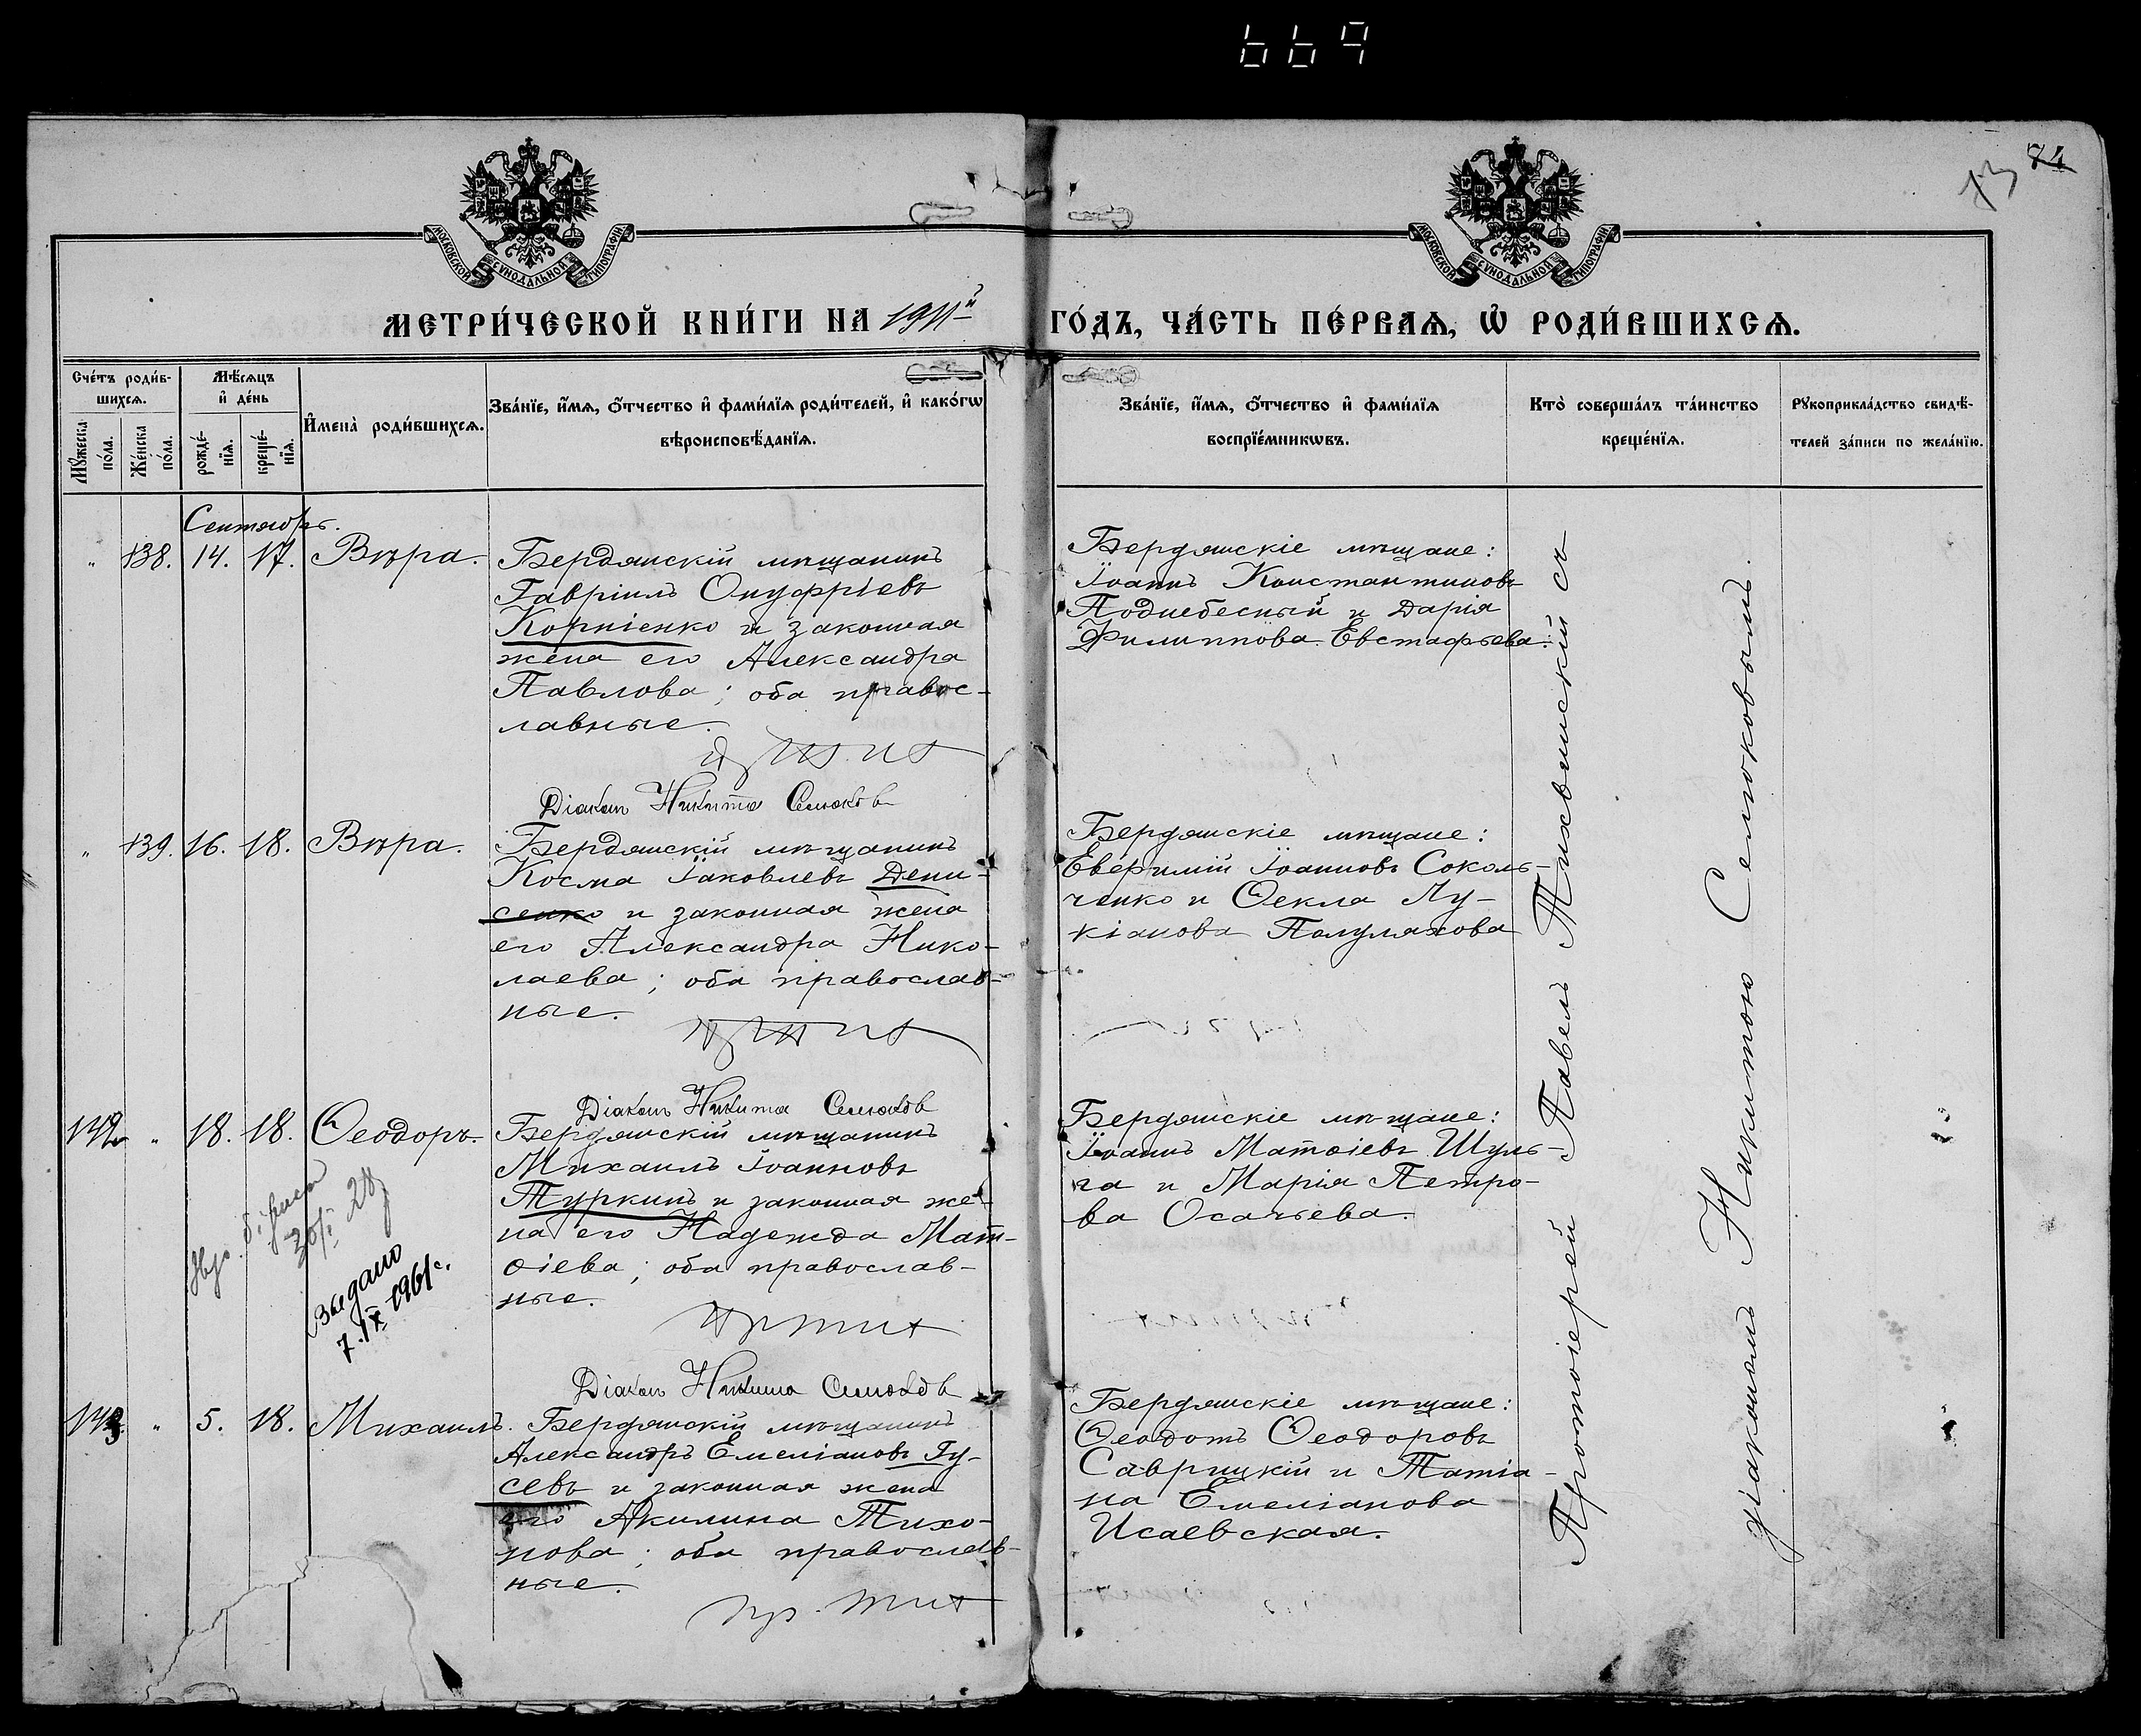 669
74
МОСКОВСКОЙ СѴНОДАЛЬНОЙ ТИПОГРАФІИ
МОСКОВСКОЙ СѴНОДАЛЬНОЙ ТИПОГРАФІИ
МЕТРИ́ЧЕСКОЙ КНИ́ГИ НА 1911й
ГО́ДЪ, ЧА́СТЬ ПЕ́РВАѦ, Ѡ҆ РОДИ́ВШИХСѦ.
Сче́тъ роди́в-
шихсѧ.
Мꙋ́жеска по́ла.
Же́нска по́ла.
Мѣ́сѧцъ
и҆ де́нь
рожде́-
нїѧ.
креще́-
нїѧ.
И҆мена̀ роди́вшихсѧ.
Зва́нїе, и҆́мѧ, ѻ҆́тчество и҆ фами́лїѧ роди́телей, и҆ како́гѡ
вѣроисповѣ́данїѧ.
Зва́нїе, и҆́мѧ, ѻ҆́тчество и҆ фами́лїѧ
воспрїе́мникѡвъ.
Кто̀ соверша́лъ та́инство
креще́нїѧ.
Рꙋкоприкла́дство свидѣ́-
телей за́писи по жела́нїю.
Сентябрь.
" 138. 14. 17. Вѣра.
Бердянскій мѣщанинъ
Гавріилъ Онуфріевъ
Корніенко и законная
жена его Александра
Павлова; оба правос-
лавные.
Діаконъ Никита Семоковъ
Бердянскіе мѣщане:
Іоаннъ Константиновъ
Поднебесный и Дарія
Филиппова Евстафьева.
" 139. 16. 18. Вѣра.
Бердянскій мѣщанинъ
Косма Іаковлевъ Дени-
сенко и законная жена
его Александра Нико-
лаева; оба православ-
ные.
Діаконъ Никита Семоковъ
Бердянскіе мѣщане:
Евѳимій Іоанновъ Соколь-
ченко и Ѳекла Лу-
кіанова Полуляхова
142 " 18. 18. Ѳеодоръ.
30/I 28
7.IX 1961г.
Бердянскій мѣщанинъ
Михаилъ Іоанновъ
Туркинъ и законная же-
на его Надежда Мат-
ѳіева; оба православ-
ные.
Діаконъ Никита Семоковъ
Бердянскіе мѣщане:
Іоаннъ Матѳіевъ Шуль-
га и Марія Петро-
ва Осачьева.
143. " 5. 18. Михаилъ.
Бердянскій мѣщанинъ
Александръ Емеліановъ Гу-
севъ и законная жена
его Акилина Тихо-
нова; оба православ-
ные.
Бердянскіе мѣщане:
Ѳеодотъ Ѳеодоровъ
Саврицкій и Татіа-
на Емеліанова
Исаевская.
Протоіерей Павелъ Тихвинскій съ
діакономъ Никитою Семоковымъ.